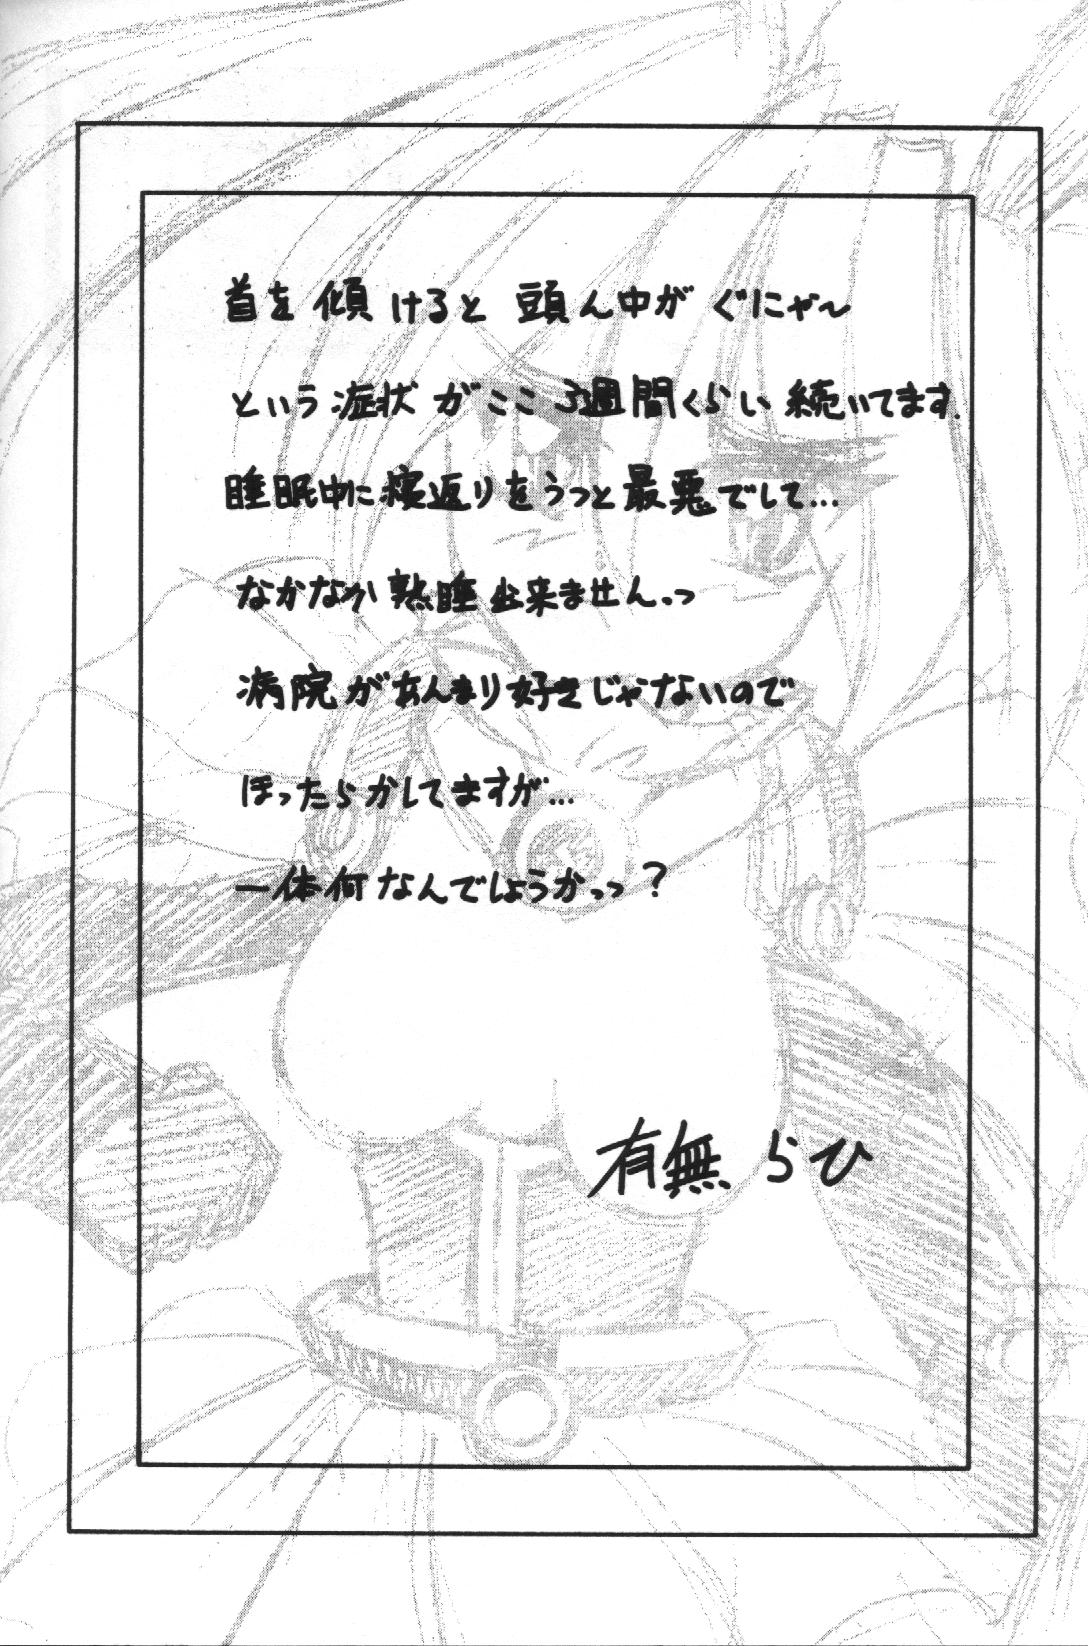 首を傾けると 頭ん中が ぐにゃ〜
という症状がここ 3週間くらい続いてます.
睡眠中に寝返りをうつと最悪でして…
なかなか熟睡出来ませんっつ
病院があんまり好きじゃないので
ほったらかしてますが…
一体何なんでしょうかっっ?
有無らひ